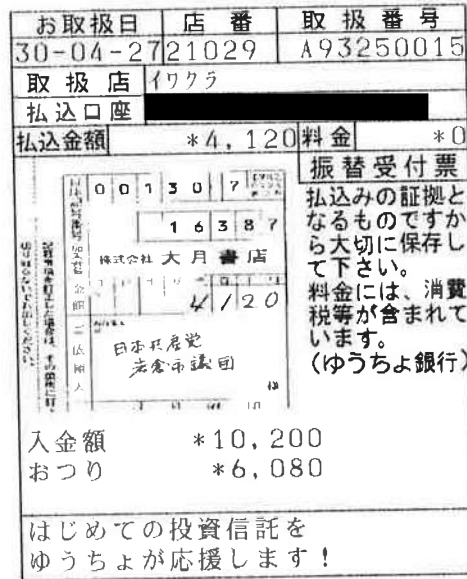 お取扱日 店番 取扱番号
30-04-27 21029 A93250015
取扱店 イワクラ
払込口座
払込金額 *4,120 料金 *0
振替受付票
払込みの証拠と
なるものですか
ら大切に保存し
て下さい。
料金には、消費
税等が含まれて
います。
(ゆうちょ銀行)
00130 7
16387
株式会社 大月書店
4120
日本共産党
岩倉市議団
様
入金額 *10,200
おつり *6,080
はじめての投資信託を
ゆうちょが応援します!